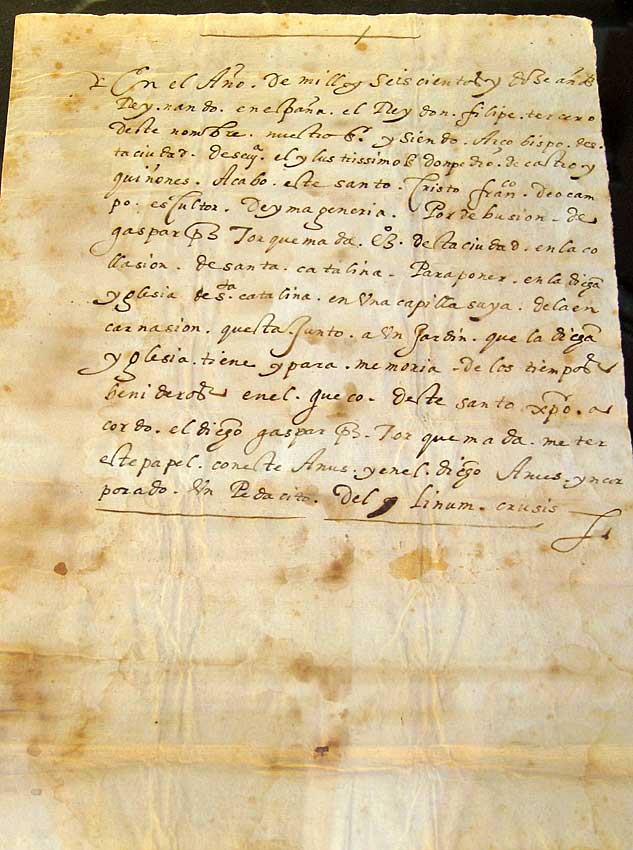 En el Año. De mill y Seiscientos y dose años
Rey. nando. en españa. el Rey don. filipe. tercero
deste nombre. nuestro S.r y siendo. Arco bispo. des
ta ciudad. el y lustrissimo S.r don pedro. de castro y
quiñones. Acabo. este santo. Cristo fran.co de ocam
po. escultor. De ymageneria. Por debusion. de
gaspar Torquemada. desta ciudad. en la co
llasion. de santa. catalina. Para poner. en la
yglesia de s.ta catalina. en Una capilla suya. de la en
carnasion. questa Junto. a Un Jardin. que la
yglesia. tiene y para. memoria. de los tiempos
benideros en el. gueco. deste santo xpo. a
cordo. el gaspar Torquemada. me ter
este papel. con este Anus. y en el. Anus. yncor
porado. Un Pedacito. Del linum. crusis